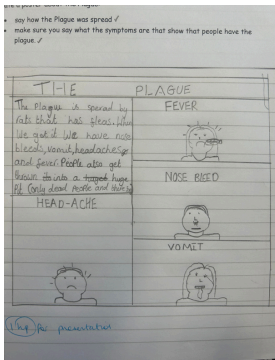 • say how the Plague was spread ✓
• make sure you say what the symptoms are that show that people have the
plague. ✓
THE PLAGUE
The Plague is spread by
rats that has fleas.
We get it We have nose
bleeds, vomit, headaches
and fever. People also get
thrown into a huge
Pit (only dead People and
HEAD-ACHE
FEVER
NOSE BLEED
VOMIT
for presentation